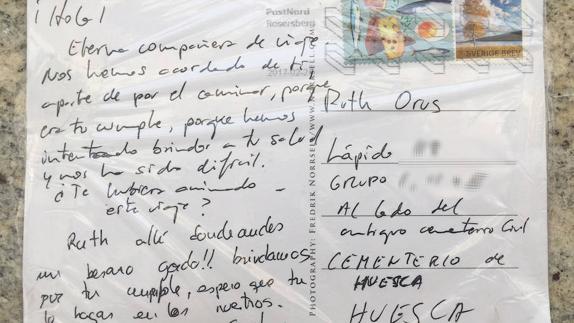 ¡Hola!
Eterna compañera de viaje
Nos hemos acordado de ti
aparte de por el camino, porque
era tu cumple, porque hemos
intentado brindar a tu salud
y nos ha sido difícil.
¿Te hubiera animado
este viaje?
Ruth allí donde andes
un besazo gordo!! brindamos
por tu cumple, espero que tu
lo hagas en los nuestros.
PostNord
Rosersberg
SVERIGE BREV
PHOTOGRAPHY: FREDRIK NORRSELL
Ruth Orus
Lápida
GRUPO
Al lado del
antiguo cementerio Civil
CEMENTERIO de
HUESCA
HUESCA